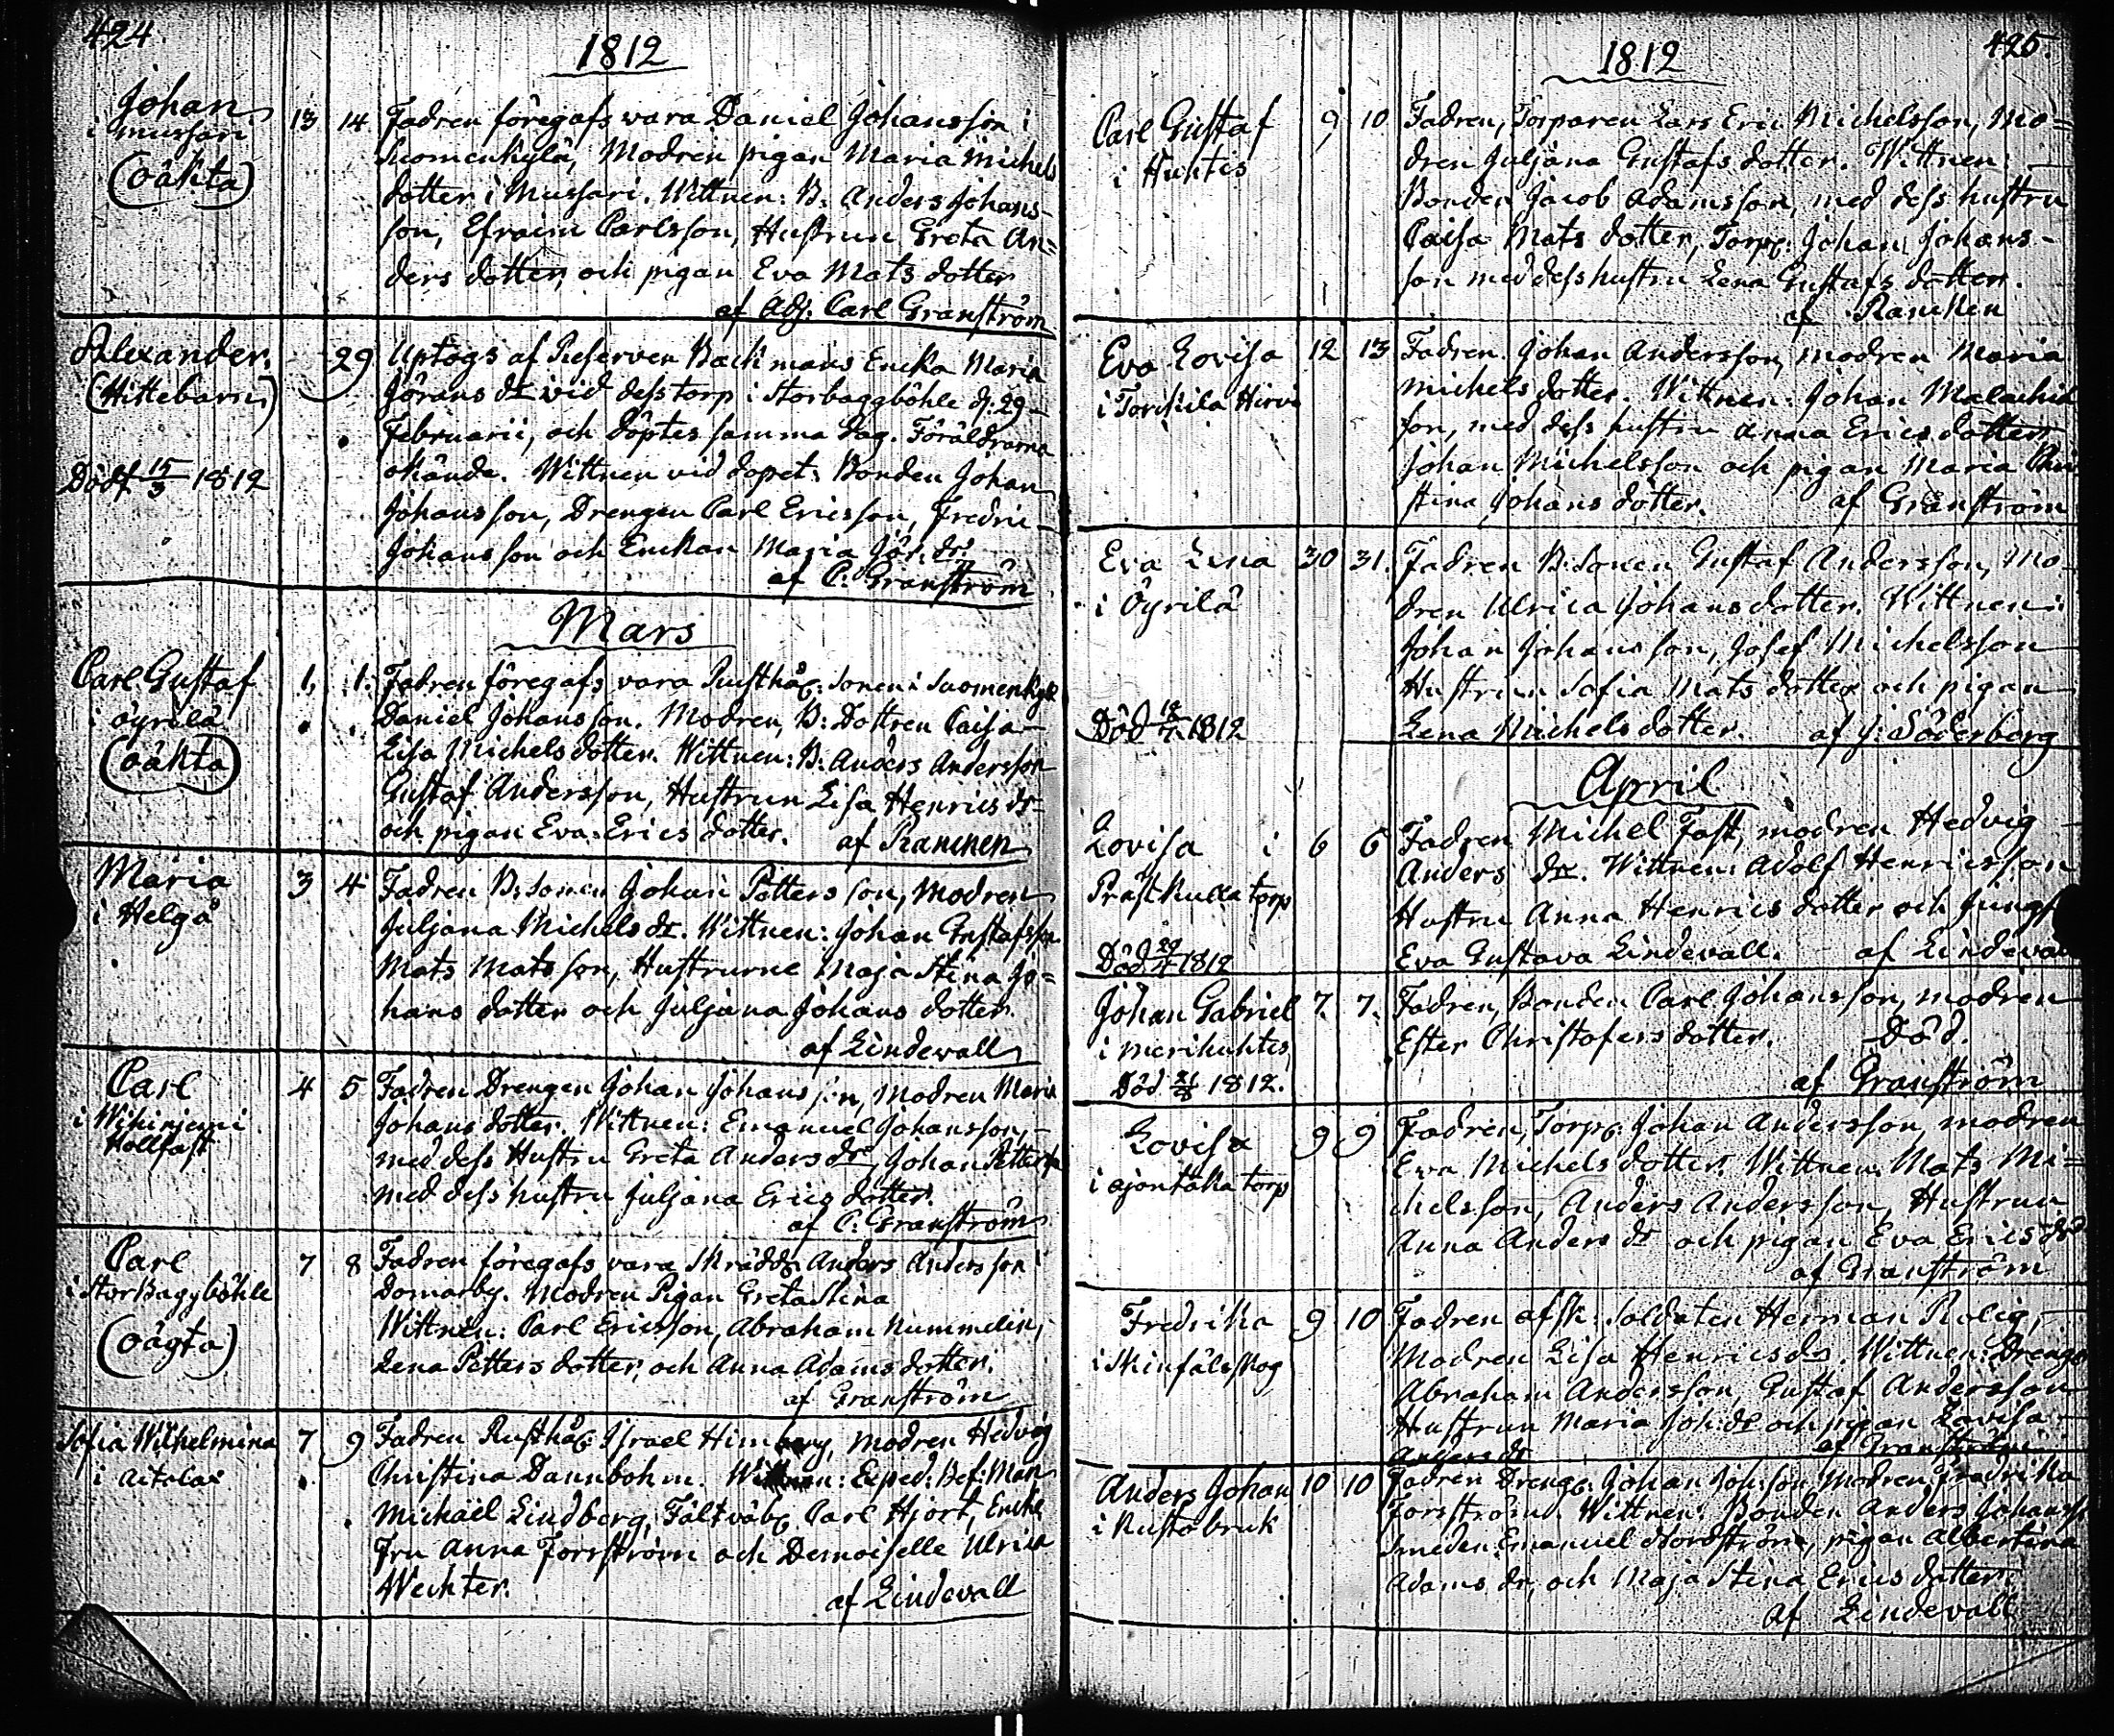 424
1812
Johan
i Mussari
(oäkta)
13 14 Fadren föregafs vara Daniel Johansson i
Suomenkylä, Modren pigan Maria Michels
dotter i Mussari. Wittnen: B: Anders Johans-
son, Efraim Carlsson, Hustrun Greta An=
ders dotter, och pigan Eva Mats dotter
af Adj. Carl Granström
Alexander.
(Hittebarn)
Död 15/3 1812
29 Uptogs af Reserven Backmans Encka Maria
Jörans dr vid dess torp i Storbaggböhle d: 29
Februarii, och döptes samma dag. Föräldrarna
okände. Wittnen vid dopet: Bonden Johan
Johansson, Drengen Carl Ericsson, Fredric
Johansson och Enckan Maria Jör. dr.
af C: Granström
Mars
Carl Gustaf
i Öyrilä
(oäkta)
1. 1. Fadren föregafs vara Rusthåls: Sonen i Suomenkylä
Daniel Johansson. Modren, B: Dottren Caisa
Lisa Michels dotter. Wittnen: B: Anders Andersson
Gustaf Andersson, Hustrun Lisa Henrics dr
och pigan Eva Erics dotter. af Rancken
Maria
i Helgå
3 4 Fadren B: Sonen Johan Pettersson, Modren
Juljana Michels dr. Wittnen: Johan Gustafsson
Mats Matsson, Hustrurne Maja Stina Jo=
hans dotter och Juljana Johans dotter.
af Lindevall
Carl
i Wihinjemi
Hollfast
4 5 Fadren Drengen Johan Johansson, Modren Maria
Johans dotter. Wittnen: Emanuel Johansson,
med dess Hustru Greta Anders dr, Johan Petters
med dess hustru Juljana Erics dotter.
af C: Granström
Carl
i Storbaggböhle
(oägta)
7 8 Fadren föregafs vara Skrädd: Anders Andersson i
Domarby. Modren Pigan Greta Stina
Wittnen: Carl Ericsson, Abraham Nummelin,
Lena Petters dotter, och Anna Adams dotter.
af Granström
Sofia Wilhelmina
i Aitolax
7 9 Fadren Rusthål: Israel Himberg, Modren Hedvig
Christina Dannbohm. Wittnen: Exped: Bef: Man
Michaël Lindberg, Fältväb: Carl Hjort, Encke
Fru Anna Forsström och Demoiselle Ulrica
Wechter. af Lindevall
425.
1812
Carl Gustaf
i Huhtis
9 10 Fadren, Torparen Lars Eric Michelsson, Mo=
dren Juljana Gustafs dotter. Wittnen:
Bonden Jacob Adamsson, med dess hustru
Caisa Mats dotter, Torp: Johan Johans-
son med dess hustru Lena Gustafs dotter.
af Rancken
Eva Lovisa
i Torckila Hirvi
12 13 Fadren Johan Andersson, modren Maria
Michels dotter. Wittnen: Johan Malachid
son, med dess hustru Anna Erics dotter
Johan Michelsson och pigan Maria Chri
stina Johans dotter. af Granström
Eva Lena
i Öyrilä
Död 18/7 1812
30 31. Fadren B: Sonen Gustaf Andersson, Mo-
dren Ulrica Johans dotter. Wittnen:
Johan Johansson, Josef Michelsson
Hustrun Sofia Mats dotter och pigan
Lena Michels dotter. af J: Söderborg
April
Lovisa i
Prästkulla torp
Död 29/4 1812
6 6 Fadren Michel Fast, modren Hedvig
Anders dr. Wittnen: Adolf Henricsson
Hustru Anna Henrics dotter och Jungf
Eva Gustava Lindevall. af Lindevall
Johan Gabriel
i Merihuhtis
Död 21/8 1812.
7. 7. Fadren, Bonden Carl Johansson, modren
Ester Christofers dotter. Död.
af Granström
Lovisa
i Ajontaka torp
9 9 Fadren, Torp: Johan Andersson, modren
Eva Michels dotter. Wittnen: Mats Mi=
chelsson, Anders Andersson, Hustrun
Anna Anders dr och pigan Eva Erics dr
af Granström
Fredrika
i Skinfälsskog
9 10 Fadren afsk: Soldaten Herman Rolig,
Modren Lisa Henrics dr. Wittnen: Dreng:
Abraham Andersson, Gustaf Andersson
Hustrun Maria Joh: dr och pigan Lovisa
Anders dr af Granström
Anders Johan
i Kustobruk
10 10 Fadren Dreng: Johan Johsson, Modren Fredrika
Forsström. Wittnen: Bonden Anders Johanss.
Smeden Emanuel Nordström, pigan Albertina
Adams dr, och Maja Stina Erics dotter.
af Lindevall